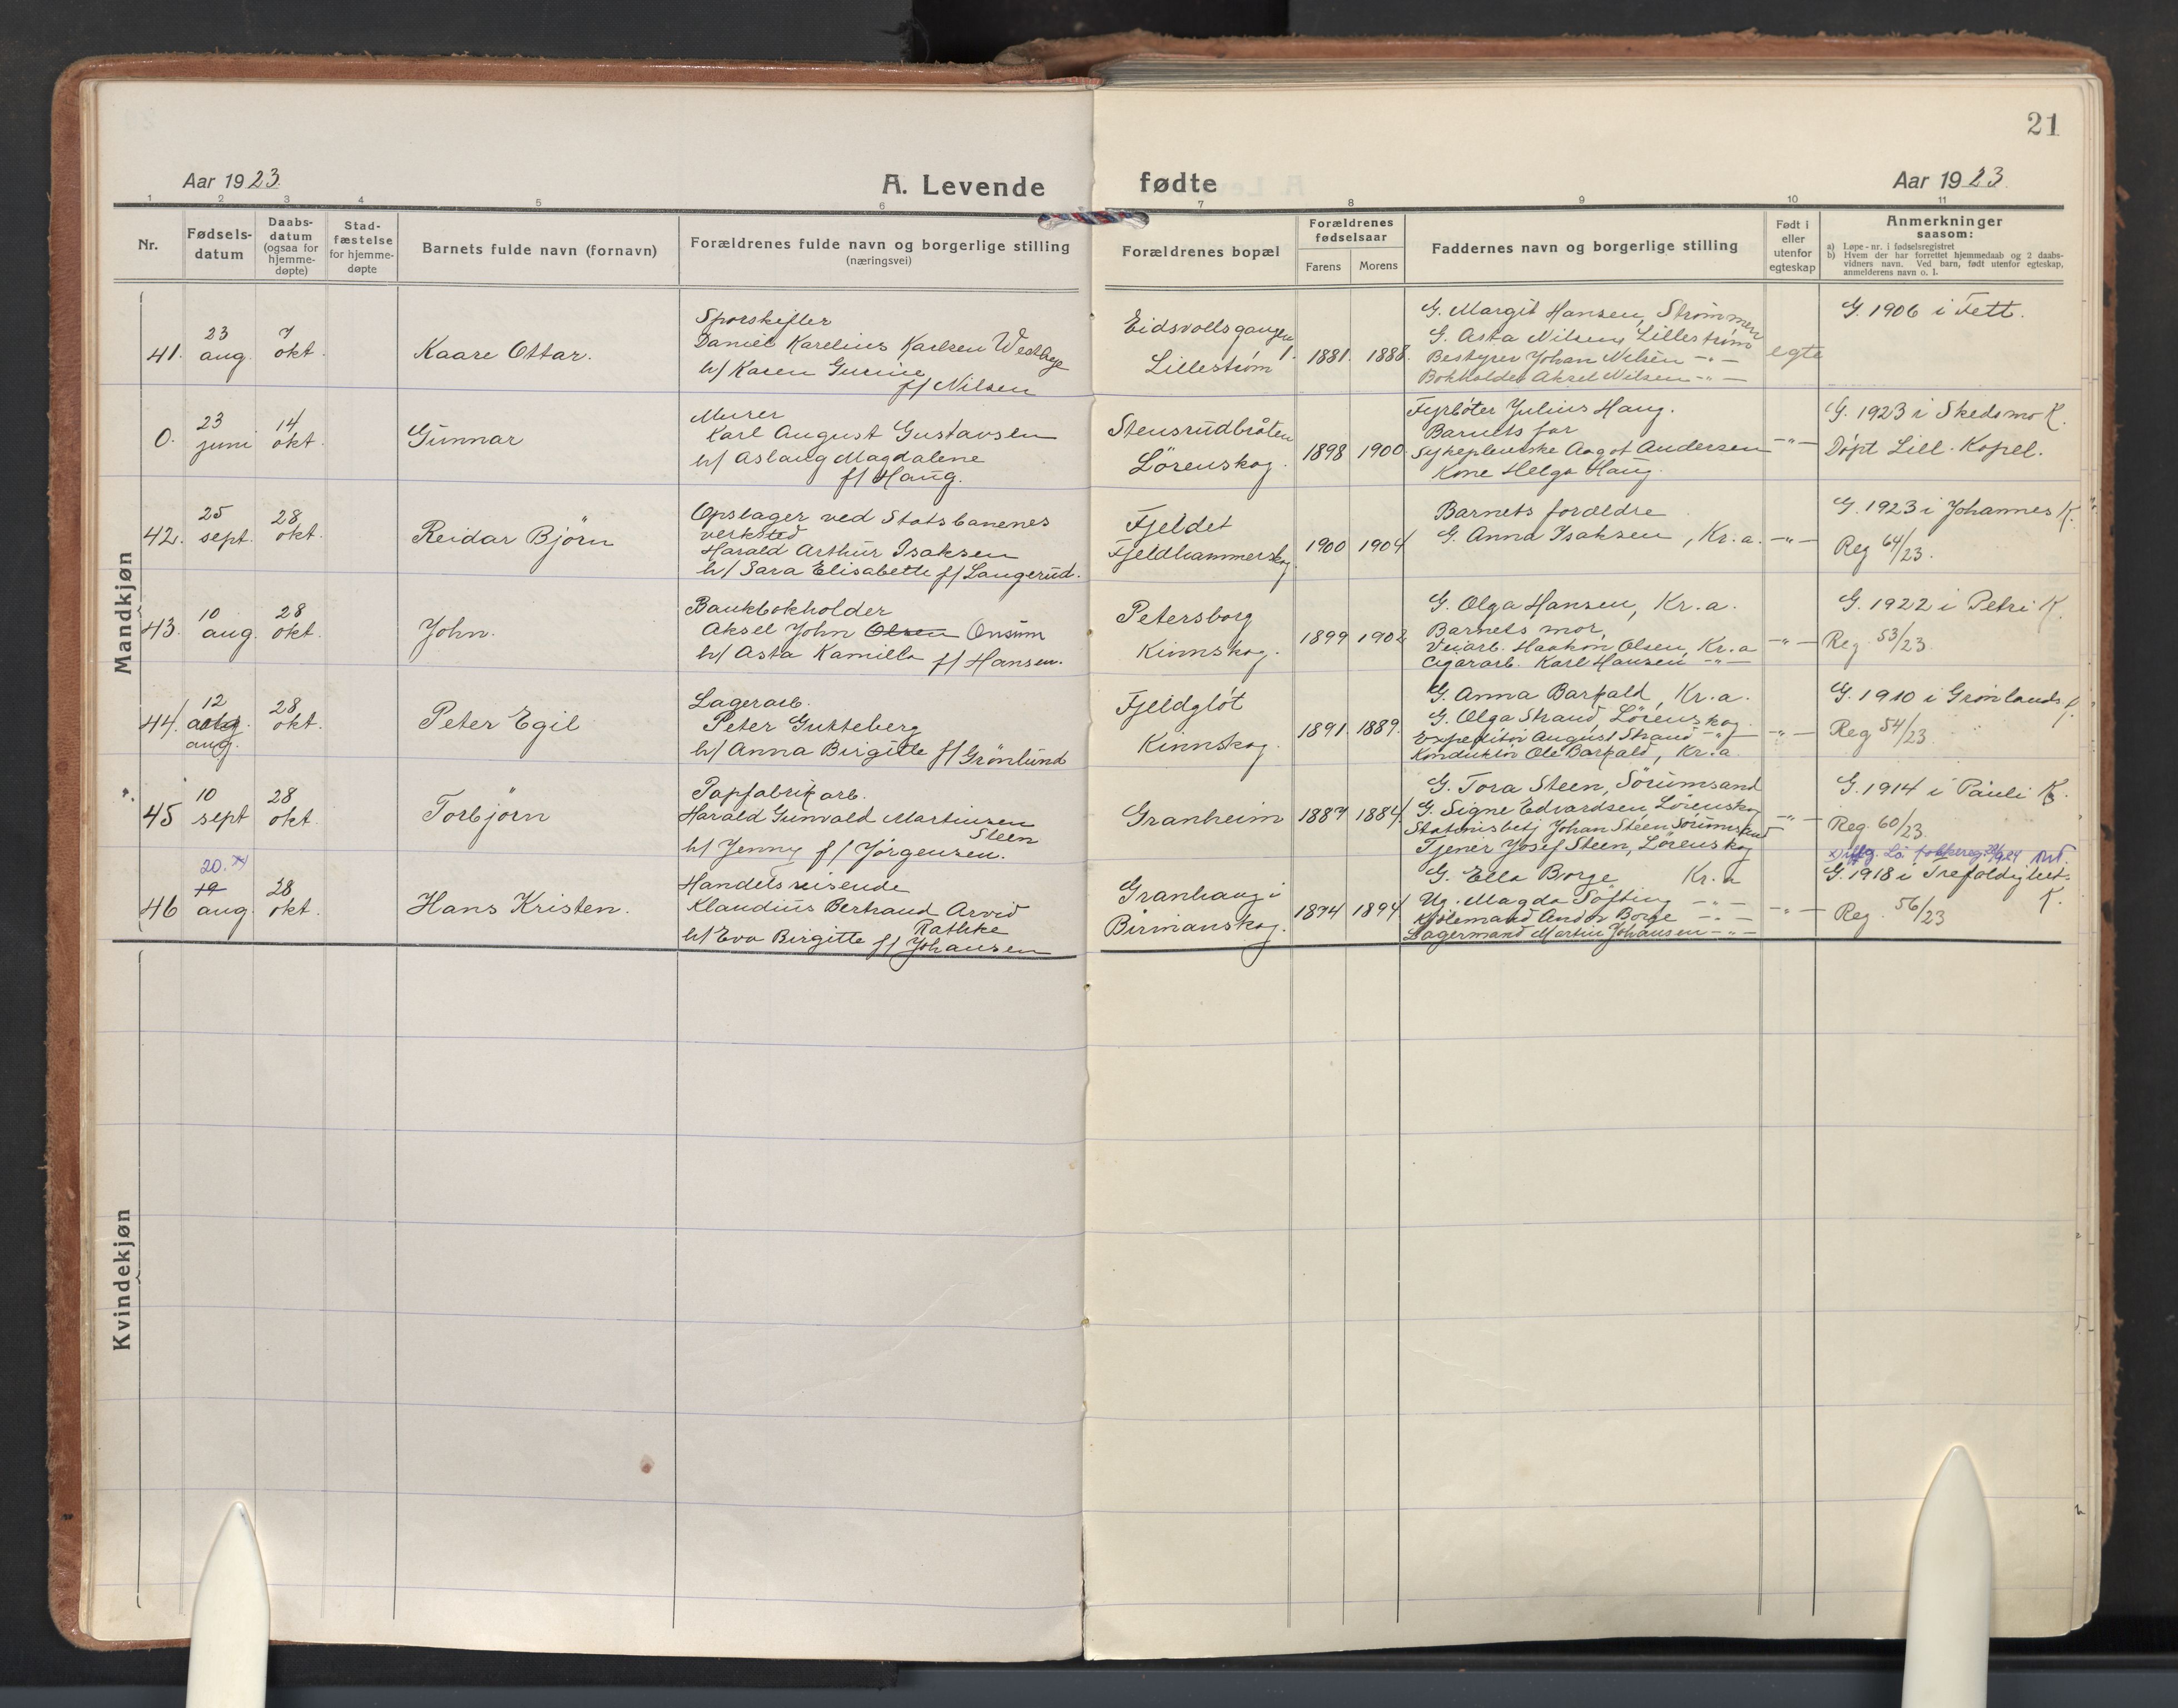 21
Aar 1923.
A. Levende
fødte
Aar 1923
1 2 3 4 5 6 7 8 9 10 11
Nr.
Fødsels-
datum
Daabs-
datum
(ogsaa for
hjemme-
døpte)
Stad-
fæstelse
for hjemme-
døpte
Barnets fulde navn (fornavn)
Forældrenes fulde navn og borgerlige stilling
(næringsvei)
Forældrenes bopæl
Forældrenes
fødselsaar
Farens Morens
Faddernes navn og borgerlige stilling
Født i
eller
utenfor
egteskap
Anmerkninger
saasom:
a) Løpe-nr. i fødselsregistret
b) Hvem der har forrettet hjemmedaab og 2 daabs-
vidners navn. Ved barn, født utenfor egteskap,
anmelderens navn o. l.
Mandkjøn
41.
23
aug.
7
okt.
Kaare Ottar.
Sporskifter
Daniel Karelius Karlsen Westbye
h/ Karen Gurine
f/ Nilsen
Eidsvollsgangen
1.
Lillestrøm
1881. 1888.
G. Margit Hansen, Strømmen
G. Asta Nilsen, Lillestrøm
Bestyrer Johan Nilsen -"-
Bokholder Aksel Nilsen -"-
egte
G. 1906 i Fett.
0.
23
juni
14
okt.
Gunnar
Murer
Karl August Gustavsen
h/ Aslaug Magdalene
f/ Haug.
Stensrudbråten
Lörenskog.
1898 1900.
Fyrbøter Julius Haug.
Barnets far
Sykepleierske Aagot Andersen
Kone Helga Haug.
-"-
G. 1923 i Skedsmo K.
Döpt Lill. Kapel.
42.
25
sept.
28
okt.
Reidar Björn
Opslager ved Statsbanenes
verksted
Harald Arthur Isaksen
h/ Sara Elisabette f/ Langerud.
Fjeldet
Fjeldhammerskog.
1900 1904
Barnets forældre
G. Anna Isaksen, Kr.a.
-"-
G. 1923 i Johannes K.
Reg 64/23.
43.
10
aug.
28
okt.
John.
Bankbokholder
Aksel John Olsen Onsum
h/ Asta Kamilla f/ Hansen.
Petersborg
Kinnskog.
1899 1902
G. Olga Hansen, Kr.a.
Barnets mor,
Veiarb. Haakon Olsen, Kr.a
Cigararb. Karl Hansen -"-
-"-
G. 1922 i Petri K.
Reg. 53/23.
44.
12
aug.
28
okt.
Peter Egil
Lagerarb.
Peter Gutteberg
h/ Anna Birgitte f/ Grönlund
Fjeldgløt
Kinnskog.
1891. 1889.
G. Anna Barkald, Kr.a.
G. Olga Strand, Lörenskog.
Expeditör August Strand -"-
Konduktör Ole Barkald, Kr.a
-"-
G. 1910 i Grönlands K.
Reg 54/23.
45
10
sept
28
okt.
Torbjörn
Papfabrikarb.
Harald Gunvald Martinsen
Steen
h/ Jenny f/ Jörgensen.
Granheim
1887 1884
G. Tora Steen, Sörumsand
G. Signe Edvardsen Lörenskog
Stationsbetj Johan Steen Sörumsand
Tjener Josef Steen, Lörenskog
-"-
G. 1914 i Pauli K.
Reg. 60/23.
46
20. x)
19
aug.
28
okt.
Hans Kristen.
Handelsreisende
Klaudius Bertrand Arvid
Rathke
h/ Eva Birgitte f/ Johansen
Granhaug i
Birmanskog.
1894 1894
G. Ella Borge Kr.a
Ug. Magda Söfting -"-
Andor Borge -"-
Lagermand Martin Johansen -"-
-"-
G. 1918 i Trefoldighet.
K.
Reg. 56/23
Kvindekjøn